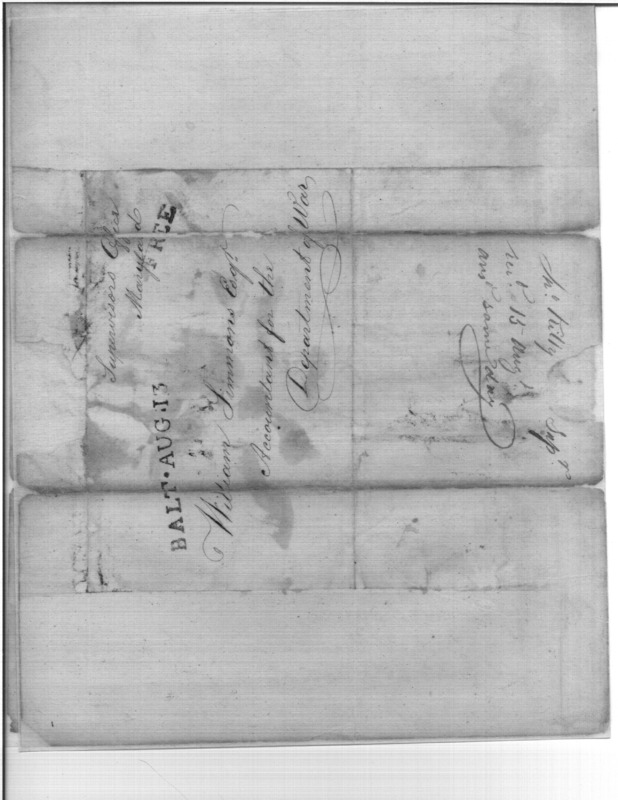 Supervisors Office
Maryland
FREE
BALT•AUG•13
William Simmons Esqr.
Accountant for the
Department of War
Supr.
recd. 15 Augt.
ansd same day